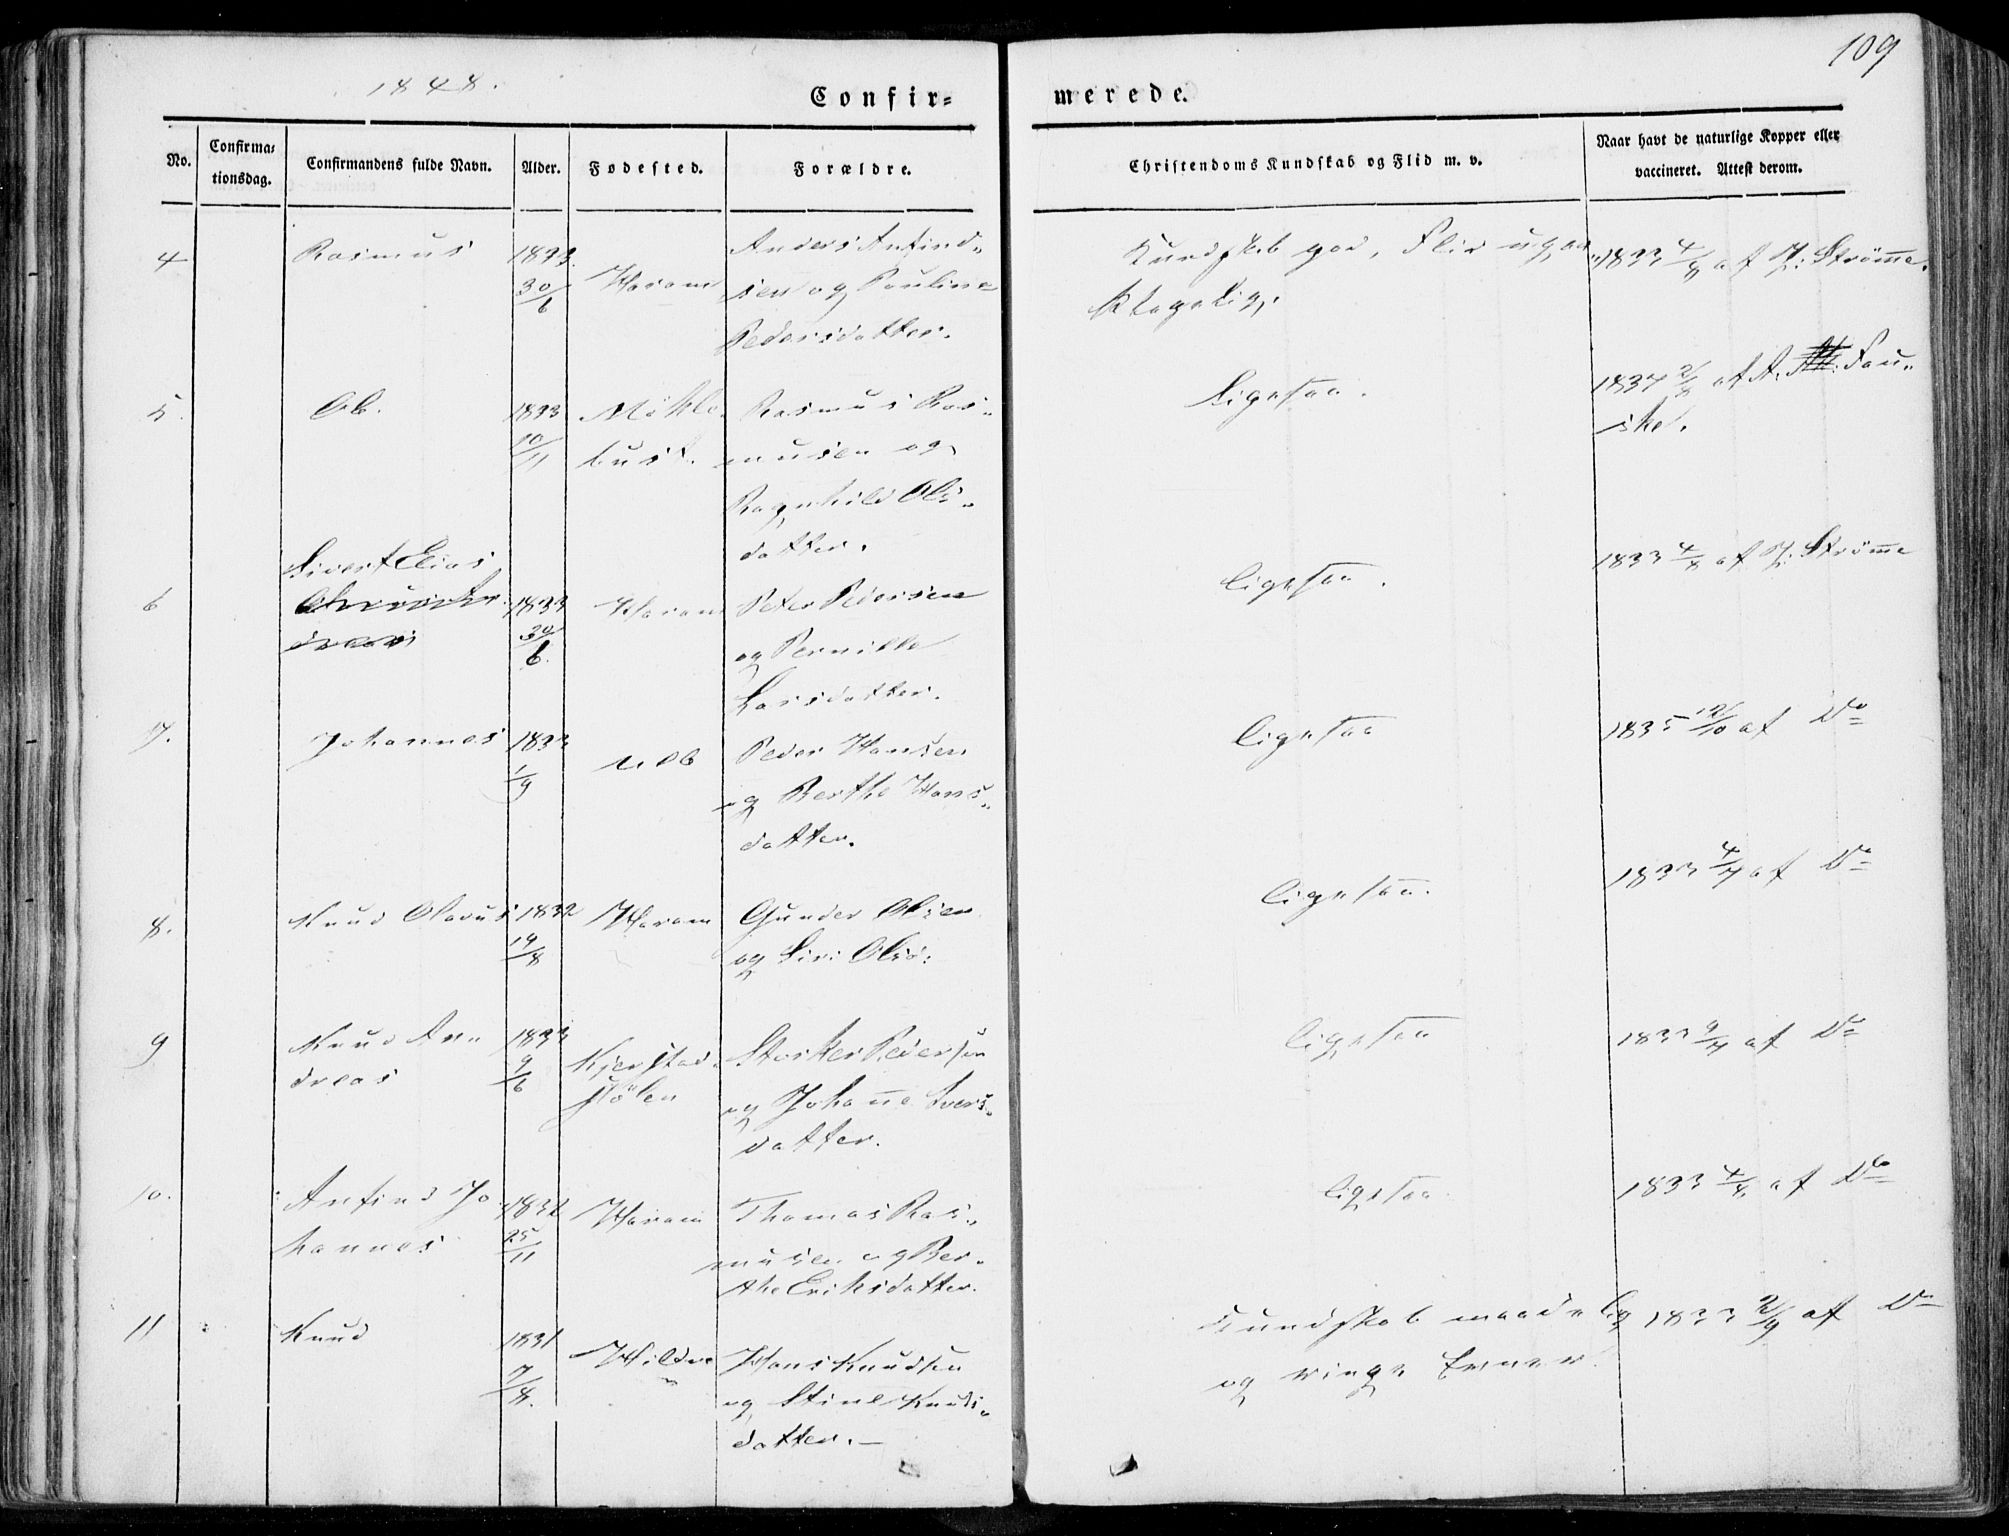 109
1848.
Confir=
merede.
No.
Confirma=
tionsdag.
Confirmandens fulde Navn.
Alder.
Fødested.
Forældre.
Christendoms Kundskab og Flid m. v.
Naar havt de naturlige Kopper eller
vaccineret. Attest derom.
4
Rasmus
1833.
30/6
Haram
Anders Anfind-
sen og Pauline
Pedersdatter.
Kundskab god, Flid
1833 4/8 af P: Strømme.
5.
Ole.
1833
10/11
bust.
Rasmus Ras-
musen og
Ragnhild Ols-
datter.
Ligesaa.
1834 2/8 af A. Fau-
ske.
6
Sivert Elias
1833
30/6.
Haram
Peter Pedersen
og Pernille
Larsdatter.
ligesaa.
1833 4/8 af P: Strømme
7.
Johannes
1833
1/9
Peder Hansen
og Berthe Hans-
datter.
ligesaa
1835 12/10 af Do
8.
Knud Olavus
1832
19/8
Haram
Gunder Olsen
og Siri Olsd:
ligesaa.
1833 4/7 af Do
9
Knud An-
dreas
1833
9/6
Kjerstad-
hølen
Pedersen
og Johanne Ivers-
datter.
ligesaa
1833 9/7 af Do
10.
Anfind Jo
hannes
1832
25/11
Haram
Thomas Ras-
musen og Ber-
the Eriksdatter.
ligesaa
1833 4/8 af Do
11
Knud
1831
7/8.
Hildre
Hans Knudsen
og Stine Knuds-
datter.—
Kundskab maadelig
og ringe Evner.
1833 2/9 af Do